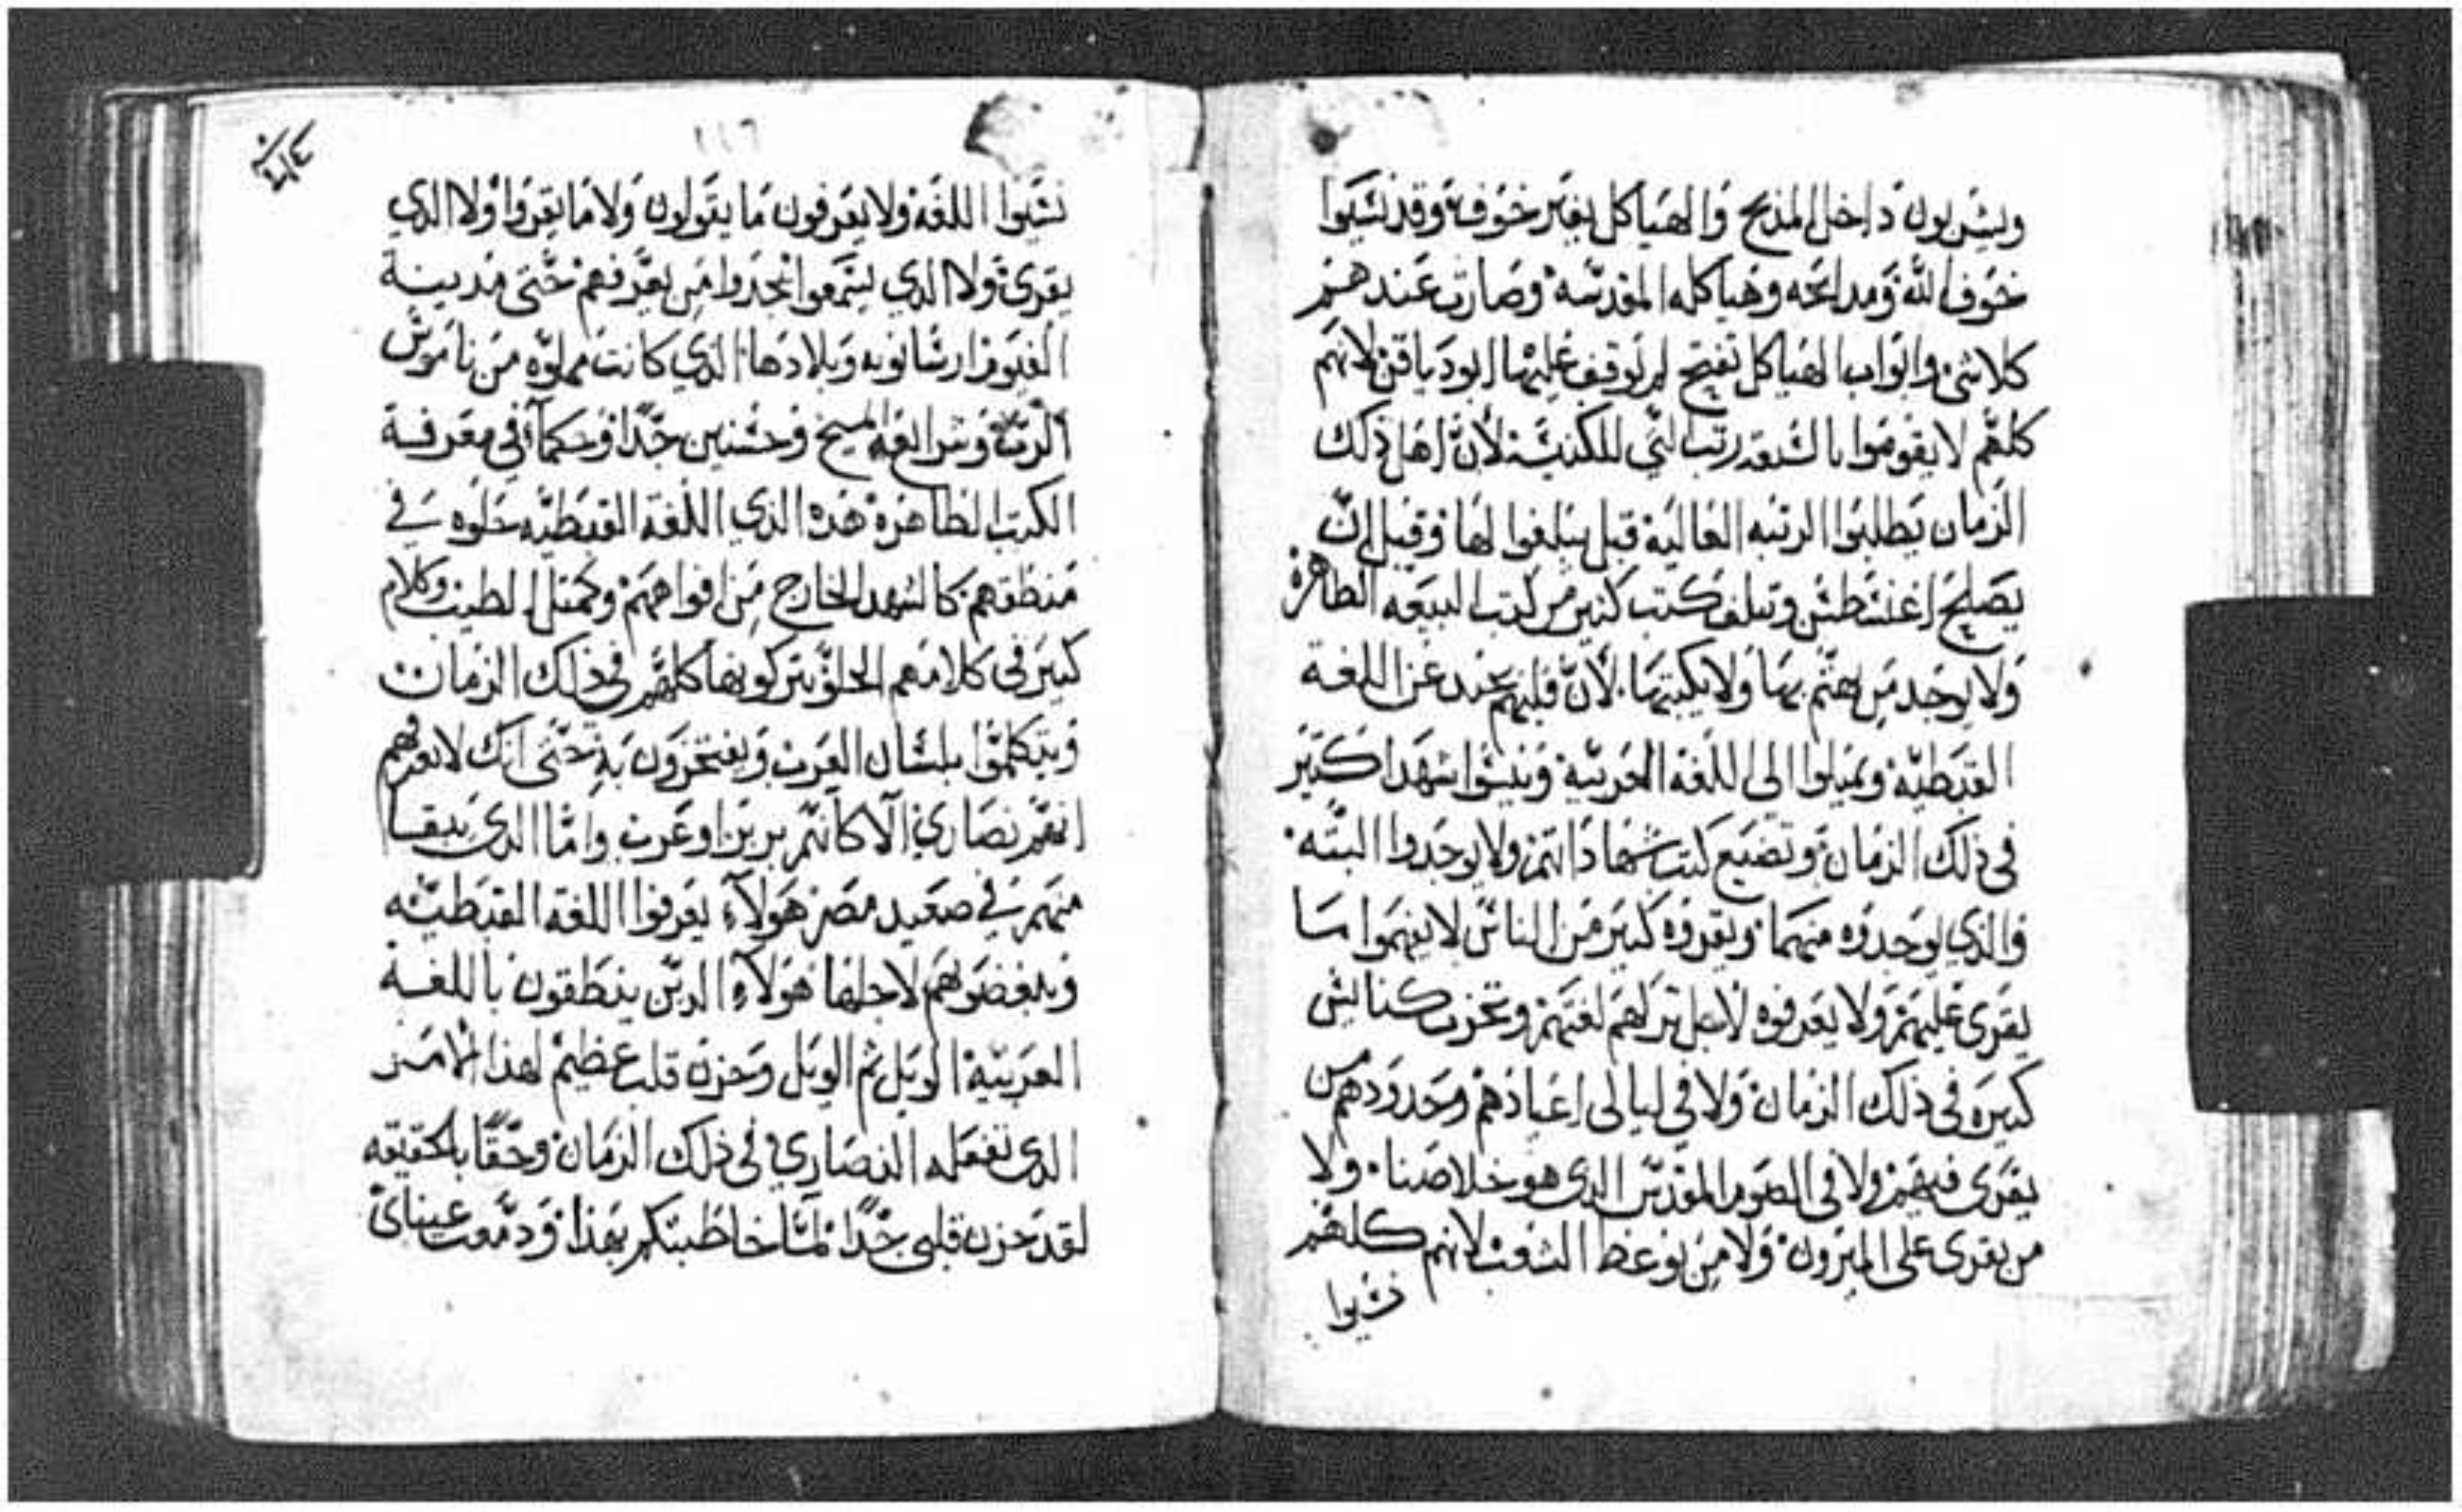 ويشربون داخل المذبح والهياكل بغير خوف وقد نسيوا
خوف الله ومدابحه وهياكله المقدسه وصارت عندهم
كلاشي وابواب الهياكل تفتح لم يوقف عليها ابودياقن لانهم
كلهم لا يقوموا بالسبعه رتب التي للكنيسة لان اهل ذلك
الزمان يطلبوا الرتبه العالية قبل يبلغوا لها وقبل ان
يصلح اغنسطس وتتلف كتب كتير من كتب البيعه الطاهرة
ولا يوجد من يهتم بها ولا يكتبها لان قلبهم يحيد عن اللغة
القبطيه ويميلوا الى اللغة العربية وينسوا شهدا كتير
في ذلك الزمان وتضيع كتب شهاداتهم ولا يوجدوا البته
والذي يوجدوه منهما ويقروه كتير من الناس لا يفهموا ما
يقرى عليهم ولا يعرفوه لاجل تركهم لغتهم وتخرب كنايس
كتيره في ذلك الزمان ولا في ليالى اعيادهم وحدودهم من
يقرى فيهم ولا في الصوم المقدس الذي هو خلاصنا ولا
من يقرى على المبرون ولا من يوعظ الشعب لانهم كلهم
نسيوا
١١٦
نسيوا اللغة ولا يعرفون ما يقولون ولا ما يقروا ولا الذي
يقرى ولا الذي يسمعوا يجدوا من يعرفهم حتى مدينة
الفيوم ارسانويه وبلادها الذي كانت مملوه من ناموس
الرب وشرايعه المسيح وحسنين جدا وحكما في معرفة
الكتب الطاهرة هذه الذي اللغة القبطيه حلوه في
منطقهم كالشهد الخارج من افواههم وكمتل الطيب وكلام
كتير في كلامهم الحلو يتركونها كلهم في ذلك الزمان
ويتكلموا بلسان العرب ويفتخرون به حتى انك لا تعرفهم
انهم نصاري الا كانهم بربر او عرب واما الذي يبقا
منهم في صعيد مصر هولاء يعرفوا اللغة القبطيه
ويبغضوهم لاجلها هولاء الدين ينطقون باللغة
العربية الويل ثم الويل وحزن قلب عظيم لهذا الامر
الذي تفعله النصاري في ذلك الزمان وحقا بالحقيقه
لقد حزن قلبي جدا لما خاطبتكم بهذا ودمعت عيناي